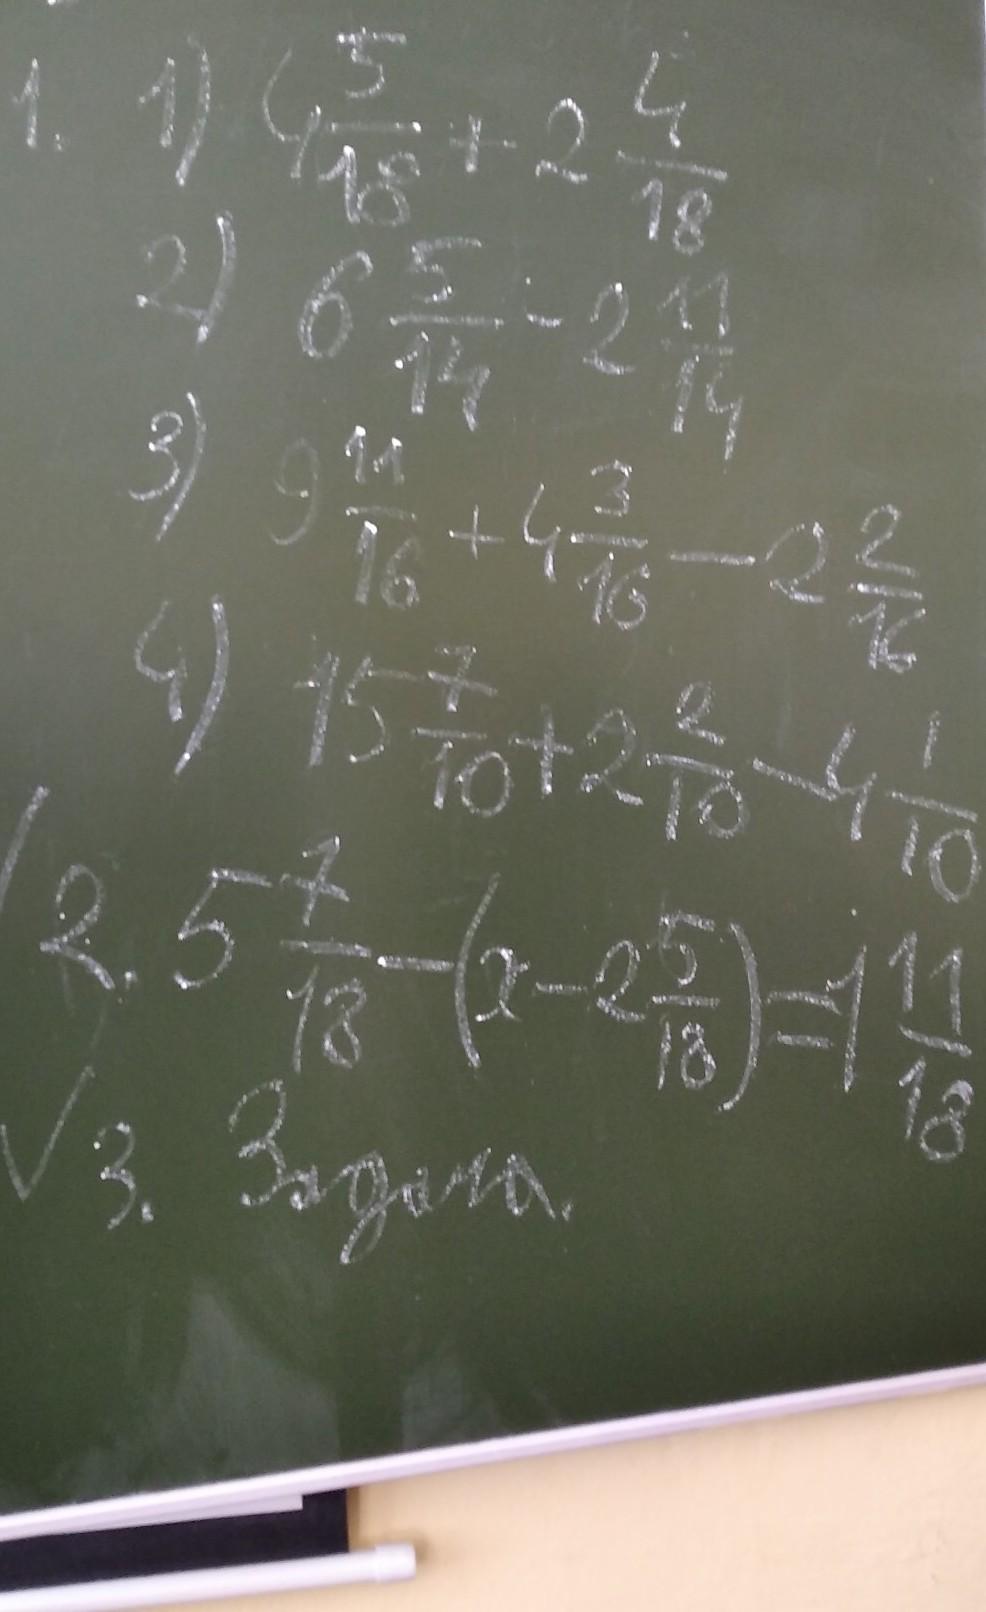 1. 1) 4 5/18 + 2 4/18
2) 6 5/14 - 2 11/14
3) 9 11/16 + 4 3/16 - 2 2/16
4) 15 7/10 + 2 2/10 - 4 1/10
2. 5 7/18 - (x - 2 5/18) = 1 11/18
√ 3. Задача.